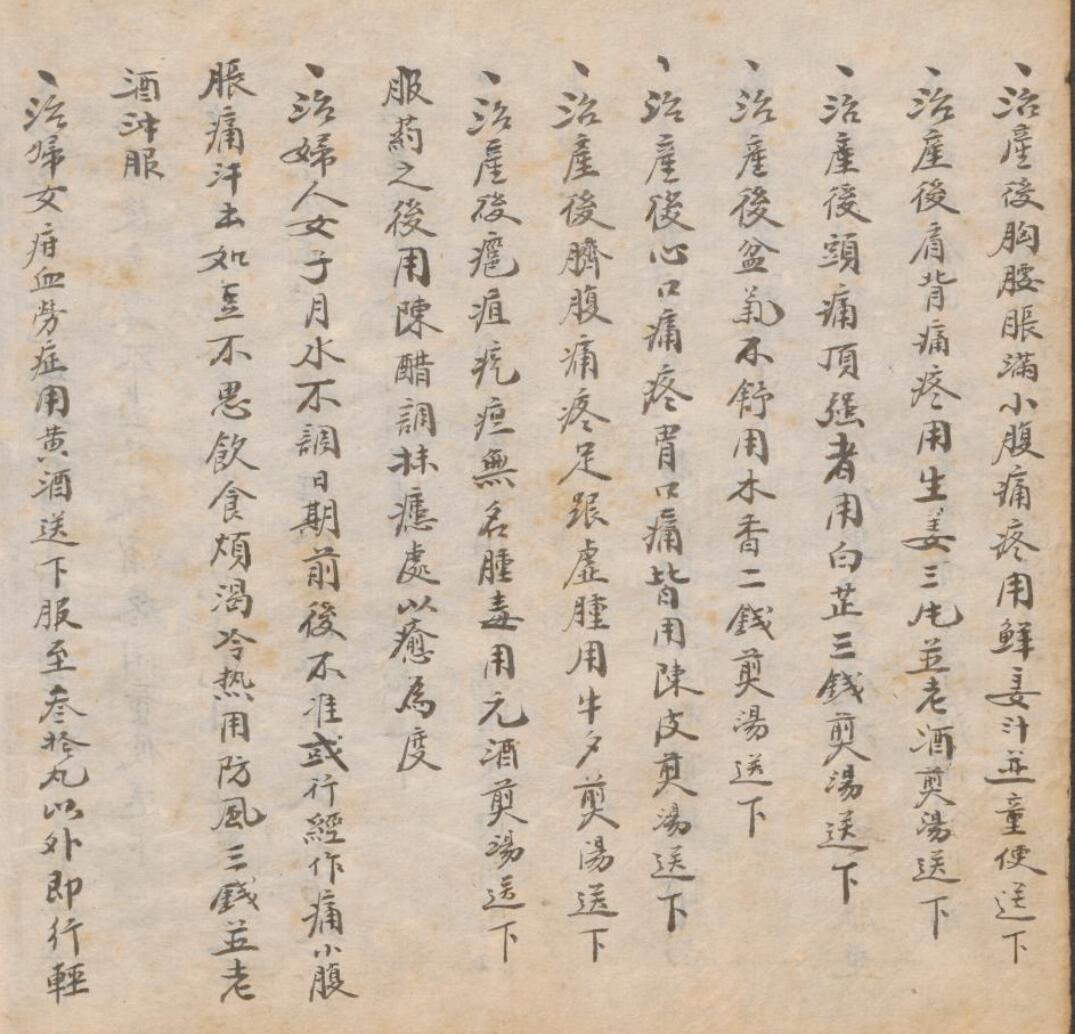 、治產後胸腰脹滿小腹痛疼用鮮姜汁並童便送下
、治產後肩背痛疼用生姜三片並老酒煎湯送下
、治產後頭痛頂强者用白芷三錢煎湯送下
、治產後盆氣不舒用木香二錢煎湯送下
、治產後心口痛疼胃口痛皆用陳皮煎湯送下
、治產後臍腹痛疼足跟虛腫用牛夕煎湯送下
、治產後疽無名腫毒用元酒煎湯送下
服药之後用陳醋調抹處以癒為度
、治婦人女子月水不調日期前後不准或行經作痛小腹
脹痛汗出如豆不思飲食煩渴冷熱用防風三錢並老
酒冲服
、治婦女疳血勞症用黄酒送下服至叁拾丸以外即行輕